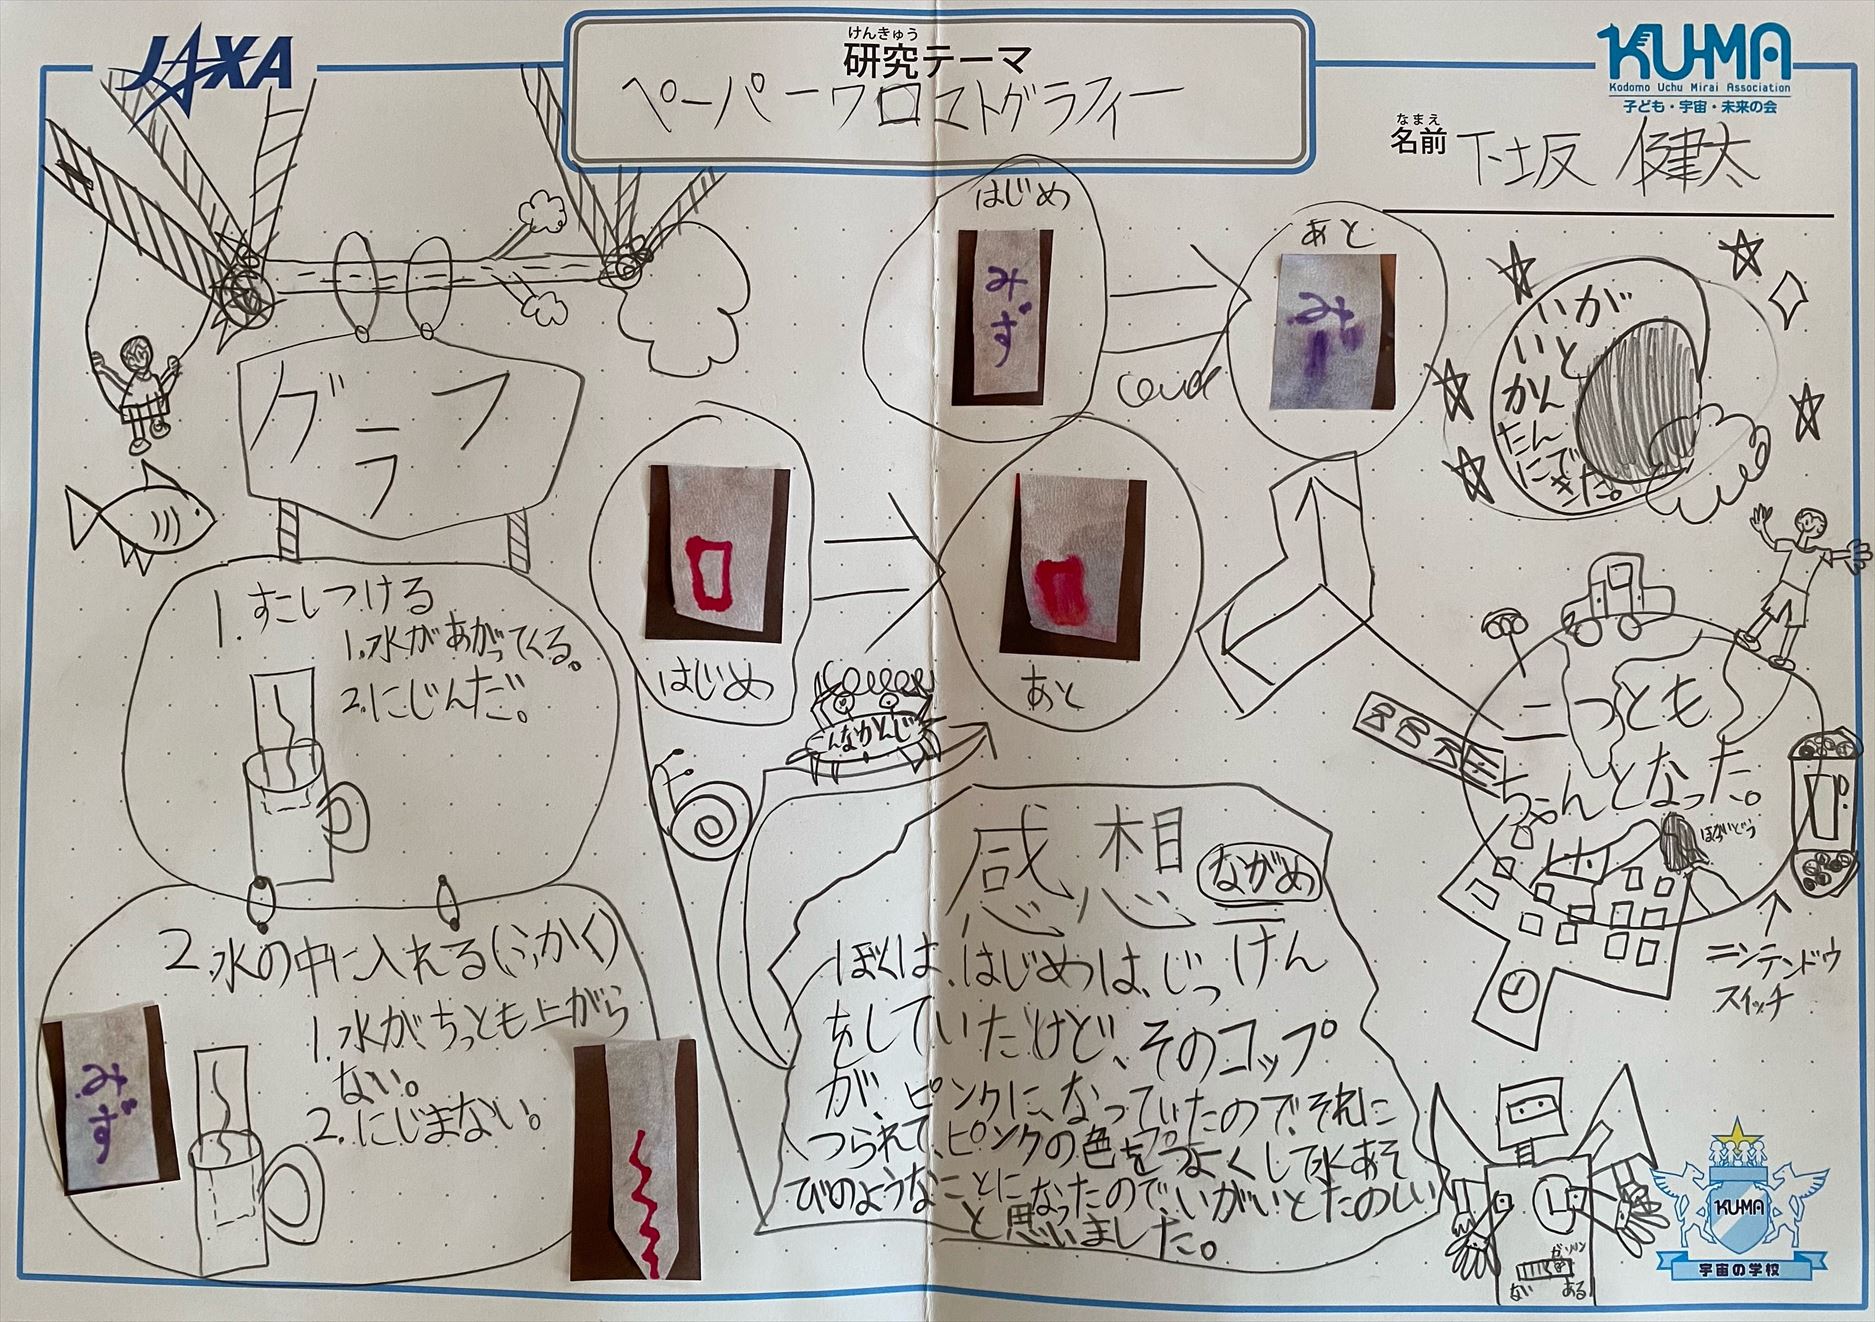 JAXA
けんきゅう
研究テーマ
ペーパークロマトグラフィー
KU-MA
Kodomo Uchu Mirai Association
子ども・宇宙・未来の会
なまえ
名前 下坂 健太
はじめ
みず
あと
みず
いがいとかんたんにできた。
グラフ
ロ
はじめ
ロ
あと
んなかんじ
1.すこしつける
1.水があがってくる。
2.にじんだ。
2.水の中に入れる(ふかく)
1.水がちっとも上がら
ない。
2.にじまない。
みず
二つとも
ちゃんとなった。
ニンテンドウ
スイッチ
感想 ながめ
ぼくは、はじめは、じっけん
をしていたけど、そのコップ
が、ピンクに、なっていたので、それに
つられて、ピンクの色をつよくして水あそ
びのようなことになったので、いがいとたのしい
と思いました。
ガソリン
ない ある
KU-MA
宇宙の学校